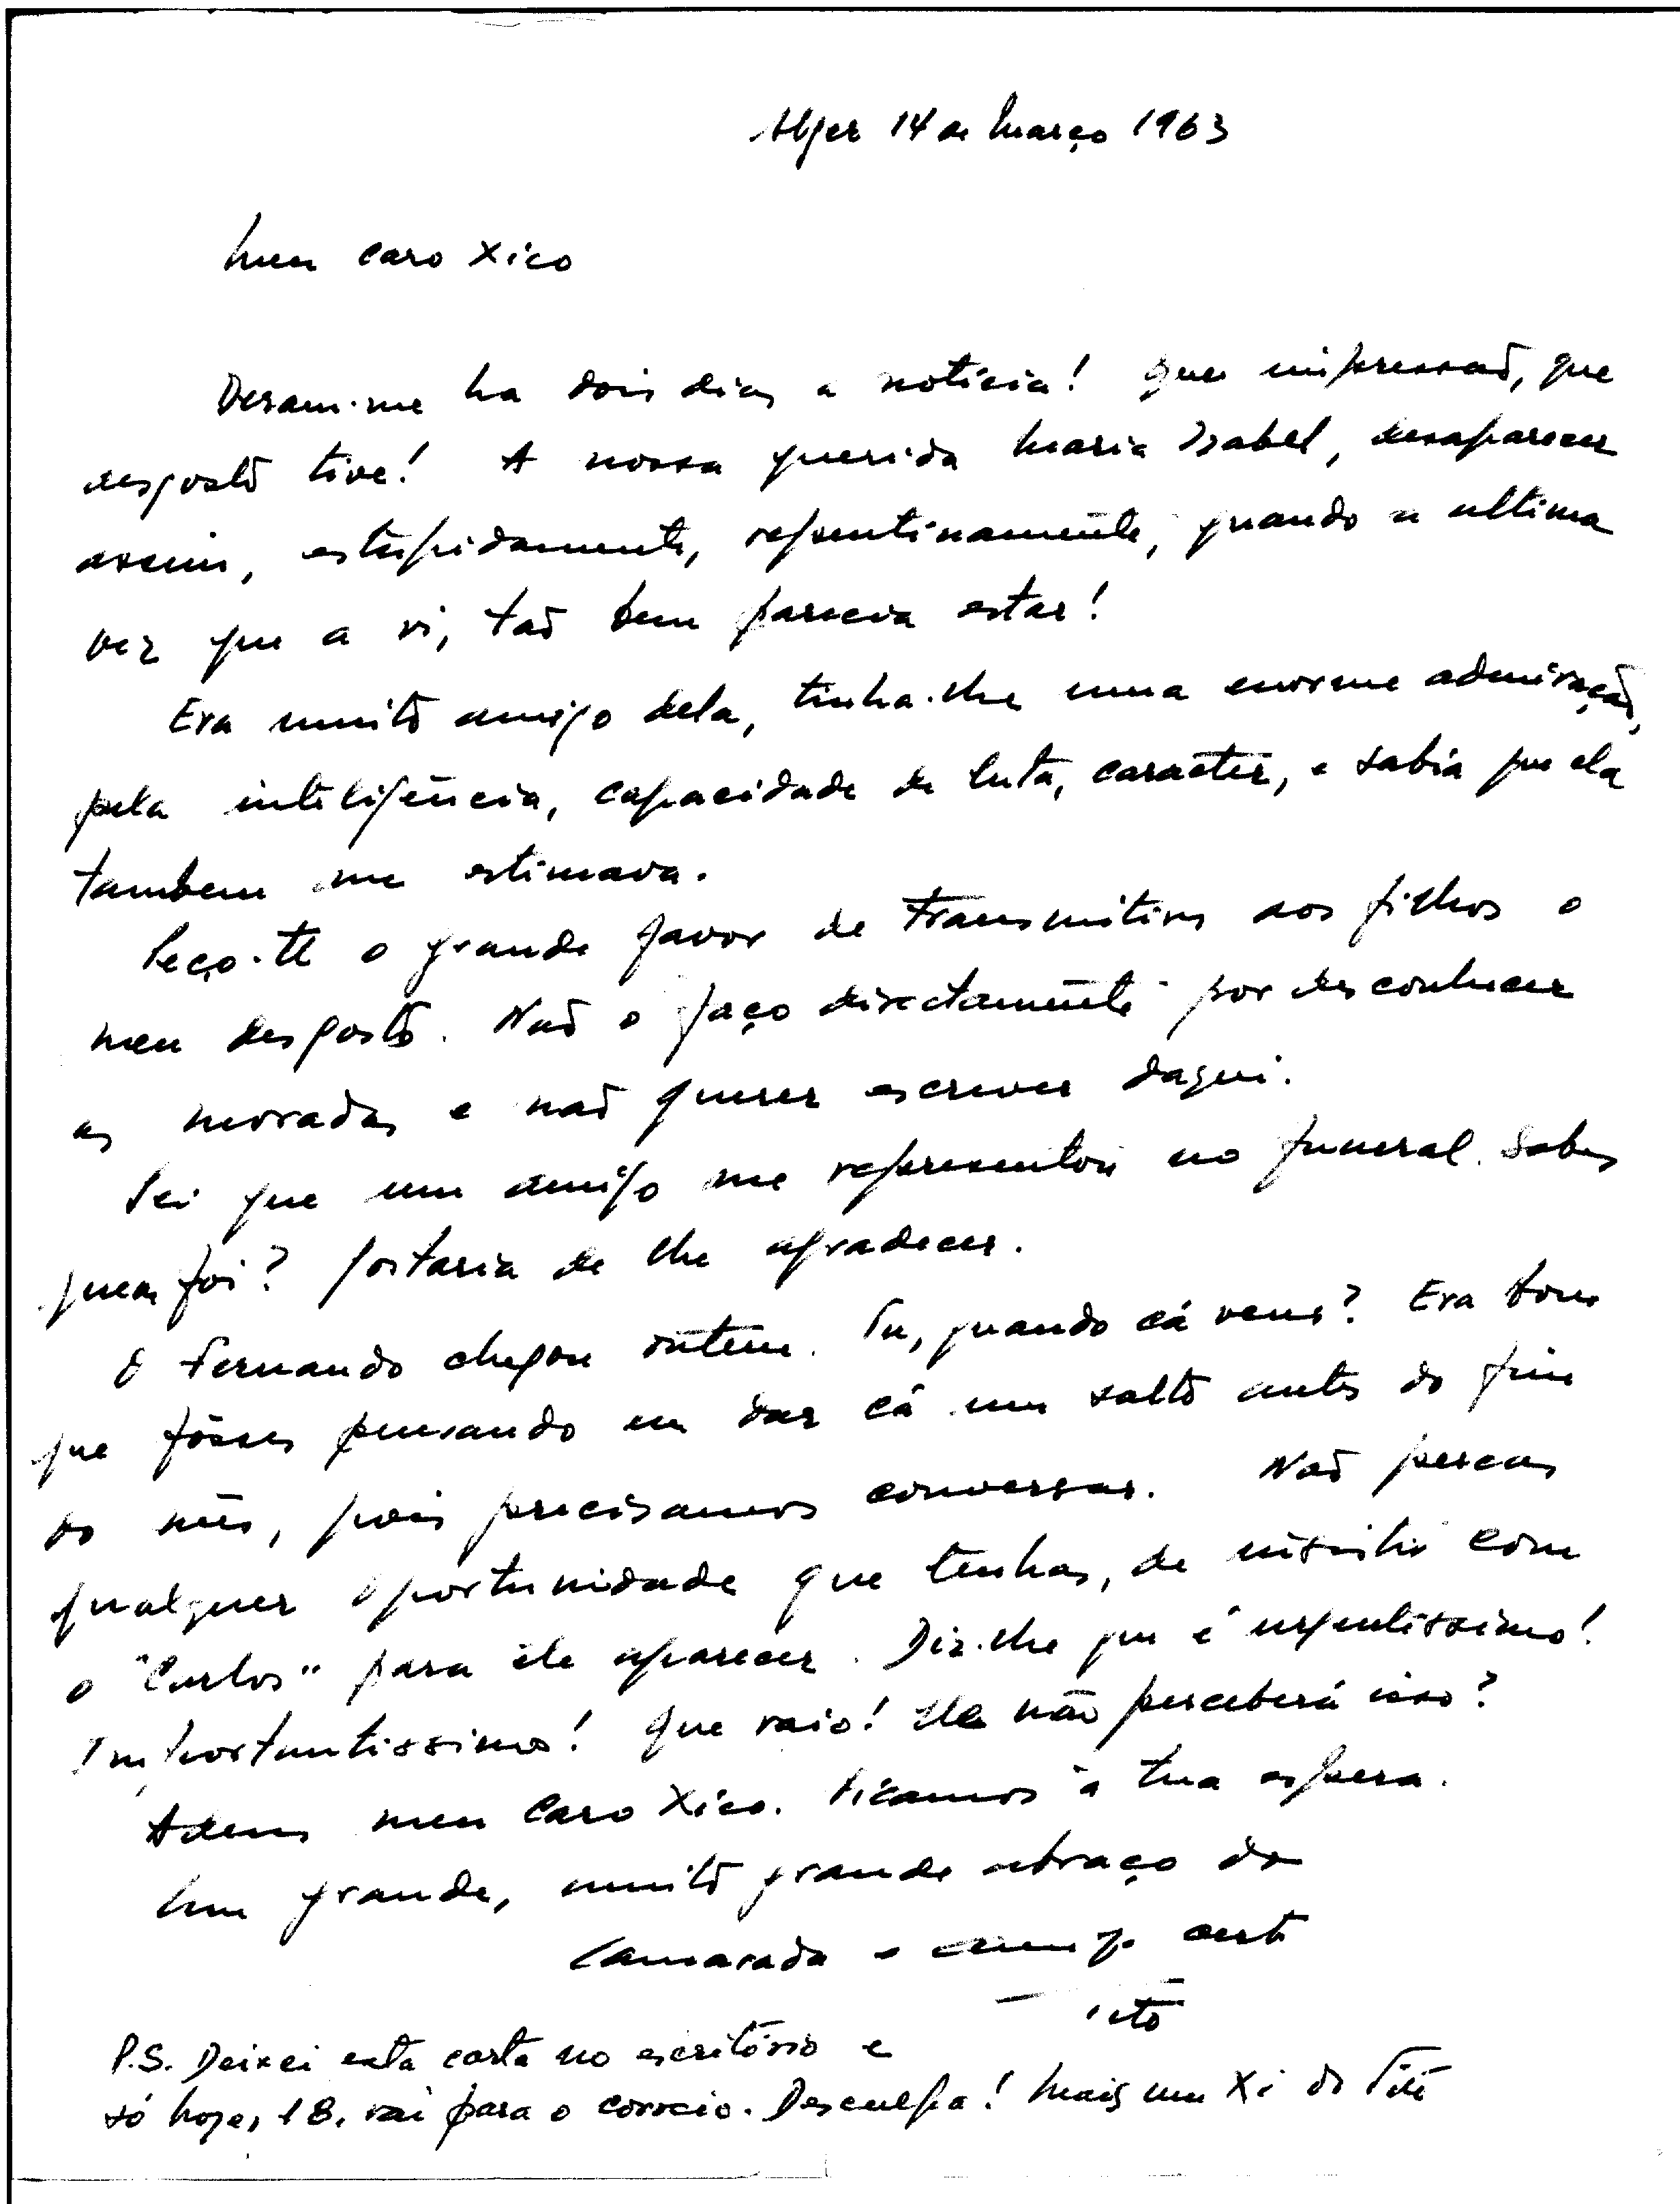 Alger 14 de Março 1963
Meu caro Xico
Deram-me ha dois dias a notícia! Que impressaõ, que
desgosto tive! A nossa querida Maria Isabel, desaparecer
assim, estùpidamente, repentinamente, quando a ultima
vez que a vi, taõ bem parecia estar!
Era muito amigo dela, tinha-lhe uma enorme admiraçaõ,
pela inteligência, capacidade de luta, caracter, e sabia que ela
tambem me estimava.
Peço-te o grande favor de transmitires aos filhos o
meu desgosto. Naõ o faço directamente por desconhecer
as moradas e naõ querer escrever daqui.
Sei que um amigo me representou no funeral. Sabes
quem foi? Gostaria de lhe agradecer.
O Fernando chegou ontem. Tu, quando cá vens? Era bom
que fôsses pensando em dar cá um salto antes do fim
do mês, pois precisamos conversar. Naõ percas
qualquer oportunidade que tenhas, de insistir com
o "Carlos" para êle aparecer. Diz-lhe que é urgentissimo!
Importantissimo! Que raio! Ele não perceberá isso?
Adeus meu caro Xico. Ficamos à tua espera.
Um grande, muito grande abraço do
Camarada e amigo certo
P.S. Deixei esta carta no escritório e
só hoje, 18, vai para o correio. Desculpa! Mais um Xi do